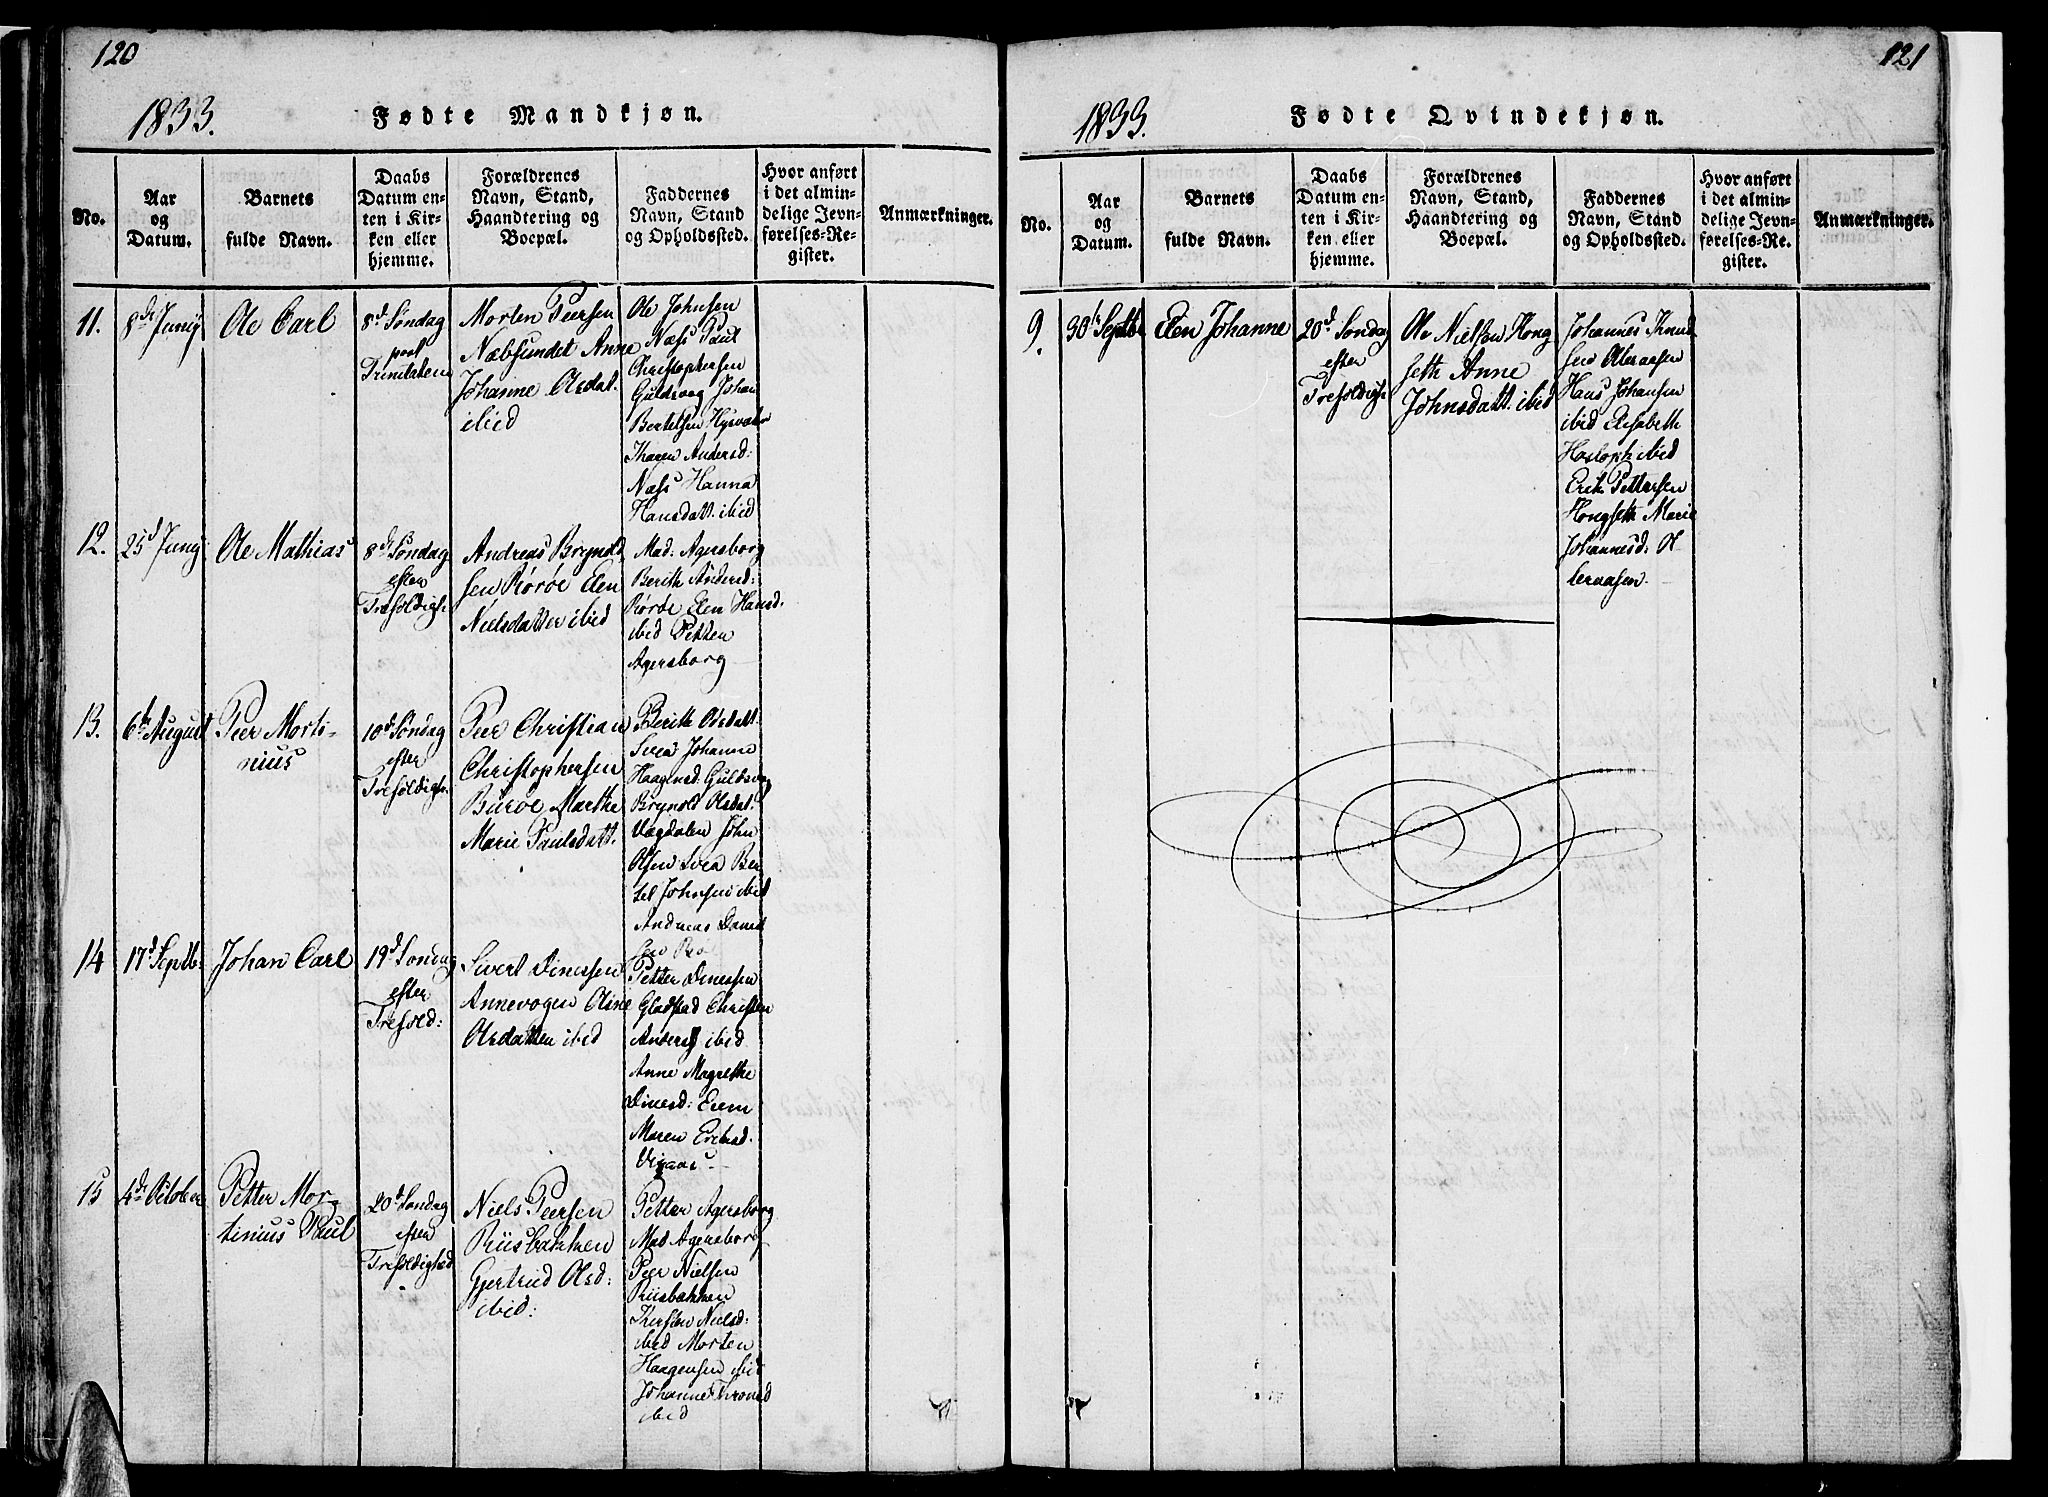 120
1833.
Fødte Mandkjøn.
No.
Aar
og
Datum.
Barnets
fulde Navn.
Daabs
Datum en-
ten i Kir-
ken eller
hjemme.
Forældrenes
Navn, Stand,
Haandtering og
Boepæl.
Faddernes
Navn, Stand
og Opholdssted.
Hvor anført
i det almin-
delige Jevn-
førelses-Re-
gister.
Anmærkninger.
11.
8de Junij
Ole Carl
8d Søndag
post
Trinitatem
Morten Peersen
Næbsundet Anne
Johanne Olsdat.
ibid
Ole Johnsen
Næss Paul
Christophersen
Guldvog Johan
Bertelsen
Karen Andersd:
Næss Hanna
Hansdatt. ibid
12.
25d Junij
Ole Mathias
8de Søndag
efter
Trefoldigh.
Andreas Brynild
sen Rørøe Elen
Nielsdatter ibid
Mad: Agersborg
Berith Andersd:
Rørøe Elen Hansd:
ibid Petter
Agersborg
13.
6te August
Peer Morti-
nius
10d Søndag
efter
Trefoldigh.
Peer Christian
Christophersen
Burøe Marthe
Marie Paulsdatt.
Berith Olsdatt.
Svea Johanne
Haagensd: Guldvog
Brynild Olsdat.
Vægdalen John
Olsen Svea Ber
tel Johnsen ibid
Andreas Daniel
sen
14
17d Septb:
Johan Carl
19d Søndag
efter
Trefold:
Sivert Dinessen
Annevogen Oline
Olsdatter ibid
Petter Dinessen
Gladstad Christen
Anders ibid
Anne Magrethe
Dinesd: Erem
Maren Erichsd.
15
4de October
Petter Mor-
tinius Paul
20d Søndag
efter
Trefoldighed
Niels Peersen
Riisbakken
Gjertrud Olsd:
ibid:
Petter Agersborg
Mad Agersborg
Peer Nielsen
Riisbakken
Kirsten Nielsd:
ibid Morten
Haagensen ibid
Johanne
ibid
121
1833.
Fødte Qvindekjøn.
No.
Aar
og
Datum.
Barnets
fulde Navn.
Daabs
Datum en-
ten i Kir-
ken eller
hjemme.
Forældrenes
Navn, Stand,
Haandtering og
Boepæl.
Faddernes
Navn, Stand
og Opholdssted.
Hvor anført
i det almin-
delige Jevn-
førelses-Re-
gister.
Anmærkninger.
9.
30te Septbr
Elen Johanne
20d Søndag
efter
Trefoldigh.
Ole Nielsen Hong
seth Anne
Johnsdatt. ibid
Johannes Knud
sen Oleraasen
Hans Johansen
ibid Elisabeth
Hastoph ibid
Erik Pettersen
Hongseth Marie
Johannesd: Ol
leraasen.